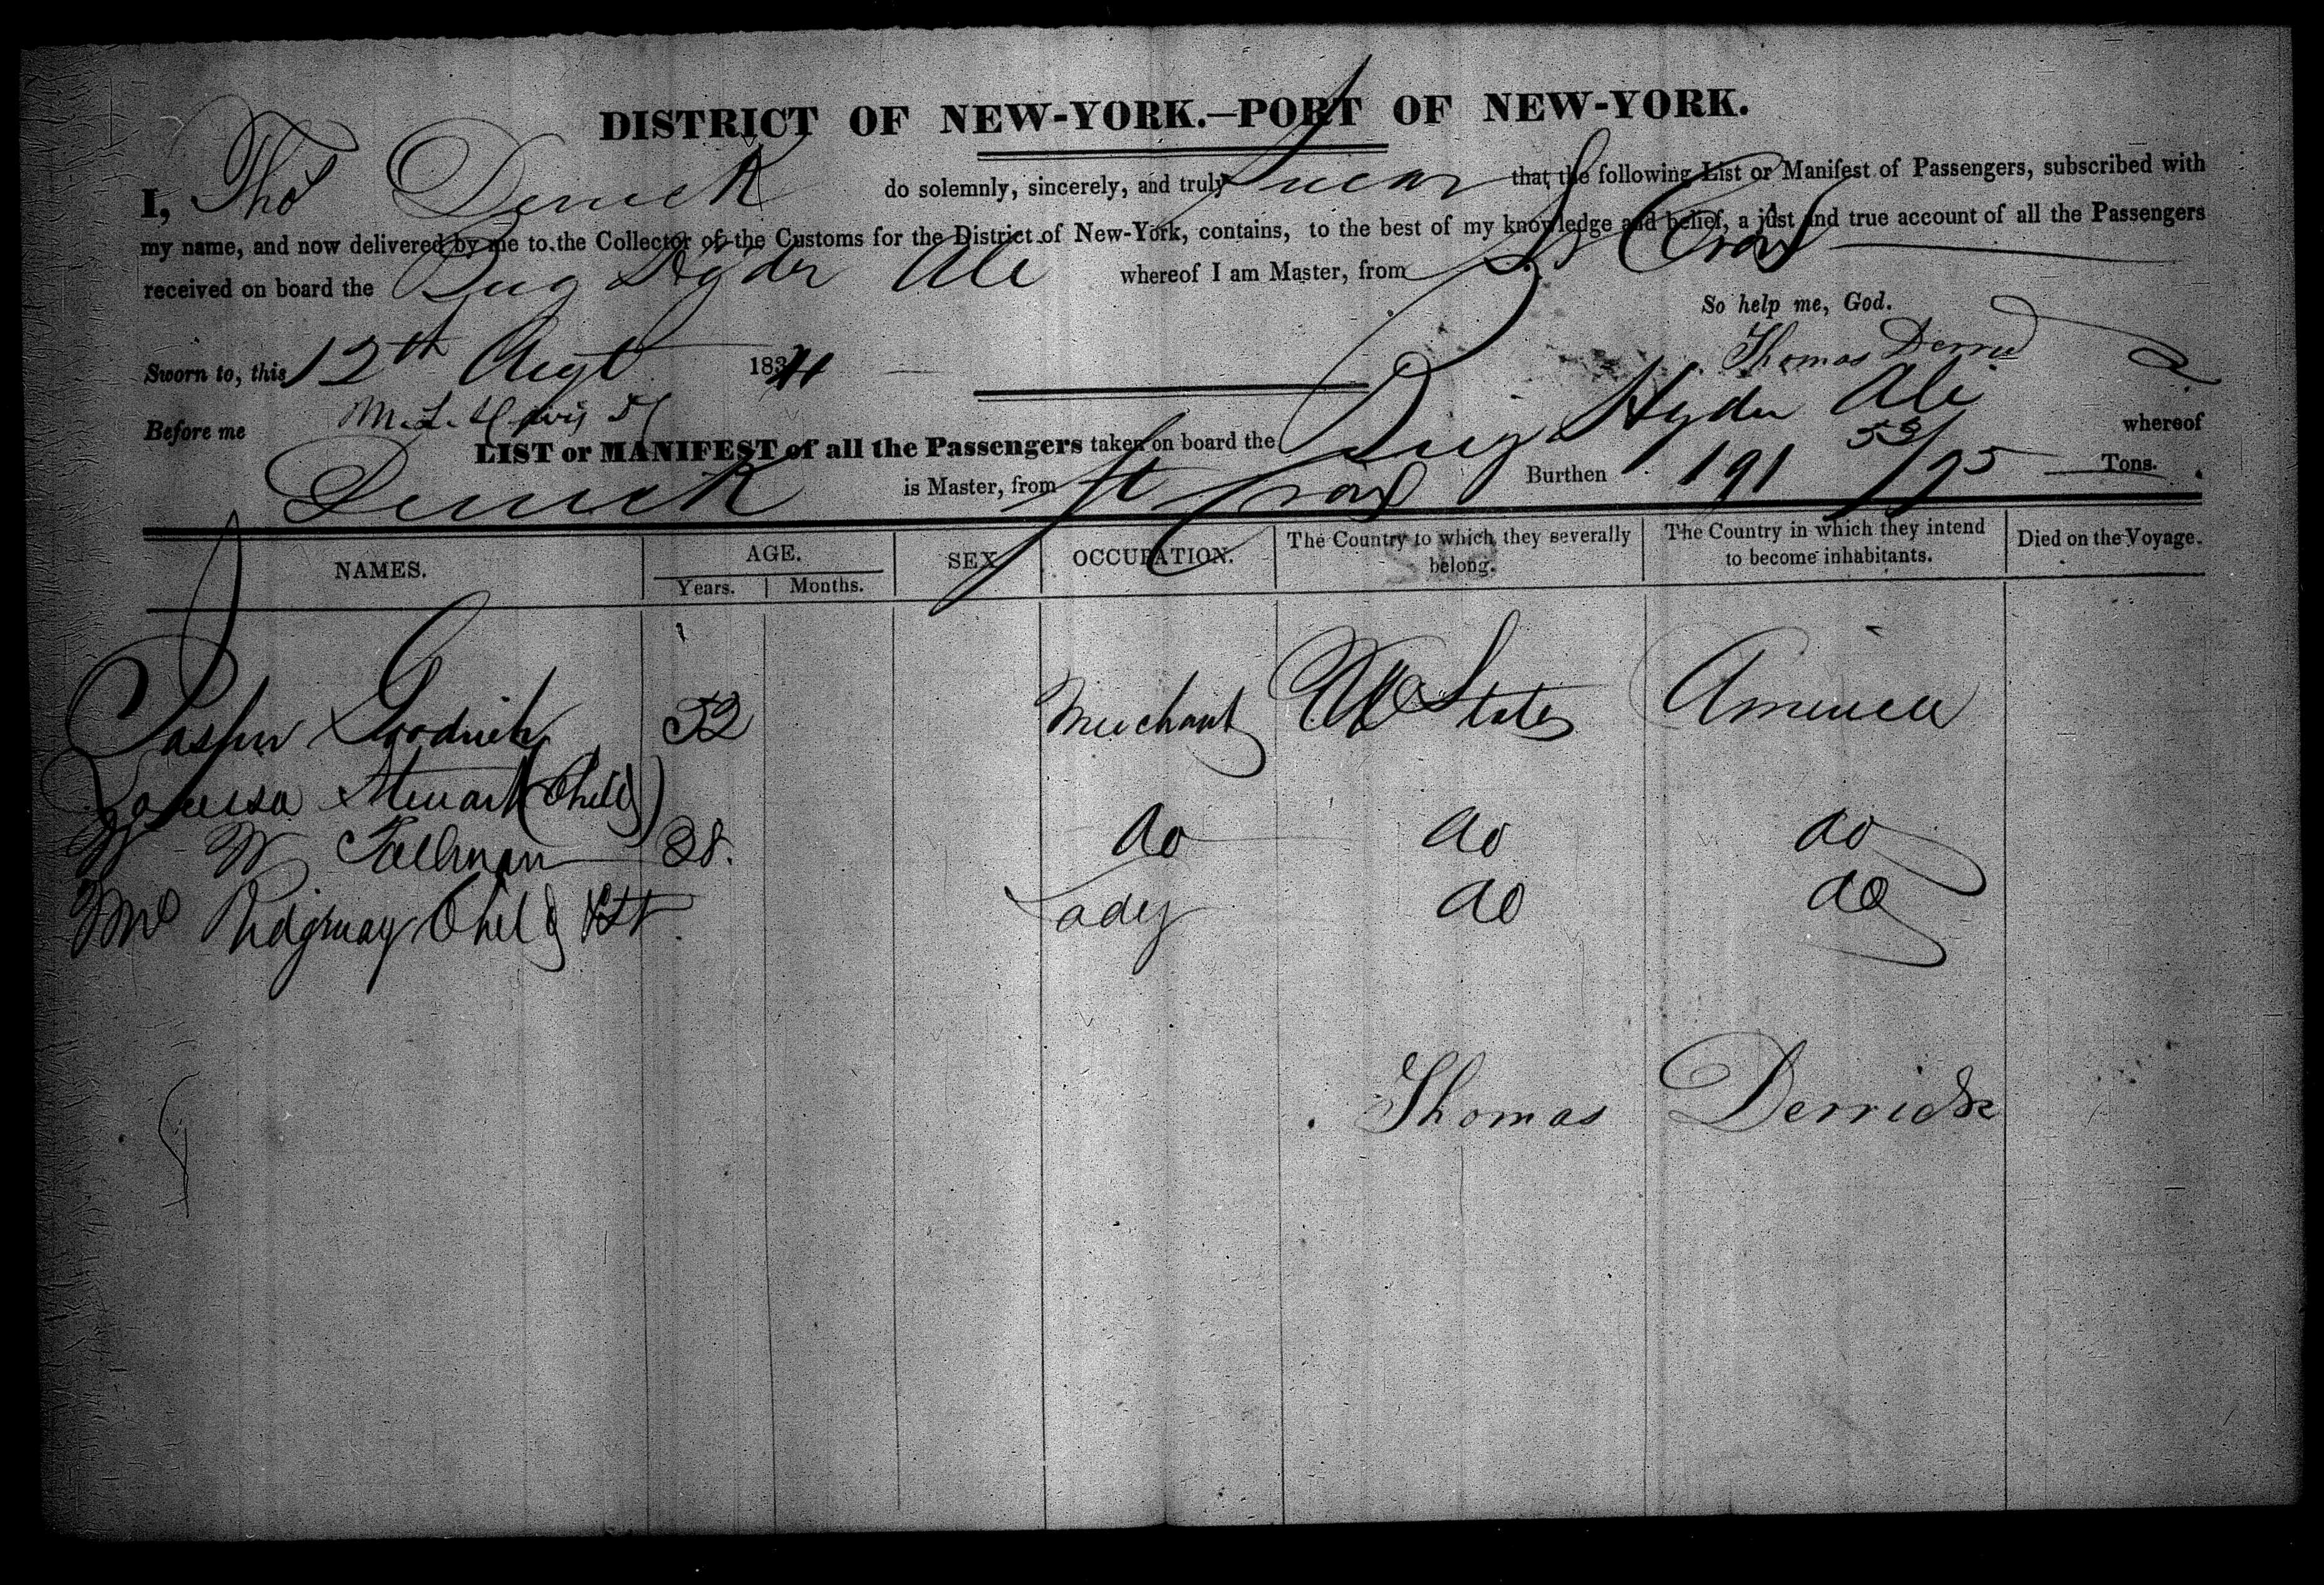 DISTRICT OF NEW-YORK.—PORT OF NEW-YORK.
I, Thos Derrick do solemnly, sincerely, and truly swear that the following List or Manifest of Passengers, subscribed with
my name, and now delivered by me to the Collector of the Customs for the District of New-York, contains, to the best of my knowledge and belief, a just and true account of all the Passengers
received on board the Brig Hyder Ali whereof I am Master, from St Croix
So help me, God.
Thomas Derrick
Sworn to, this 12th Augt 1834
Before me M. L. Davis
LIST or MANIFEST of all the Passengers taken on board the Brig Hyder Ali whereof
Derrick is Master, from St Croix Burthen 191 53/95 Tons.
NAMES. AGE. Years. Months. SEX OCCUPATION. The Country to which they severally belong. The Country in which they intend to become inhabitants. Died on the Voyage.
Goodrich 52 Merchant U States America
Stewart (Child)
W W 38. do do do
Ridgway Child & St Lady do do
Thomas Derrick